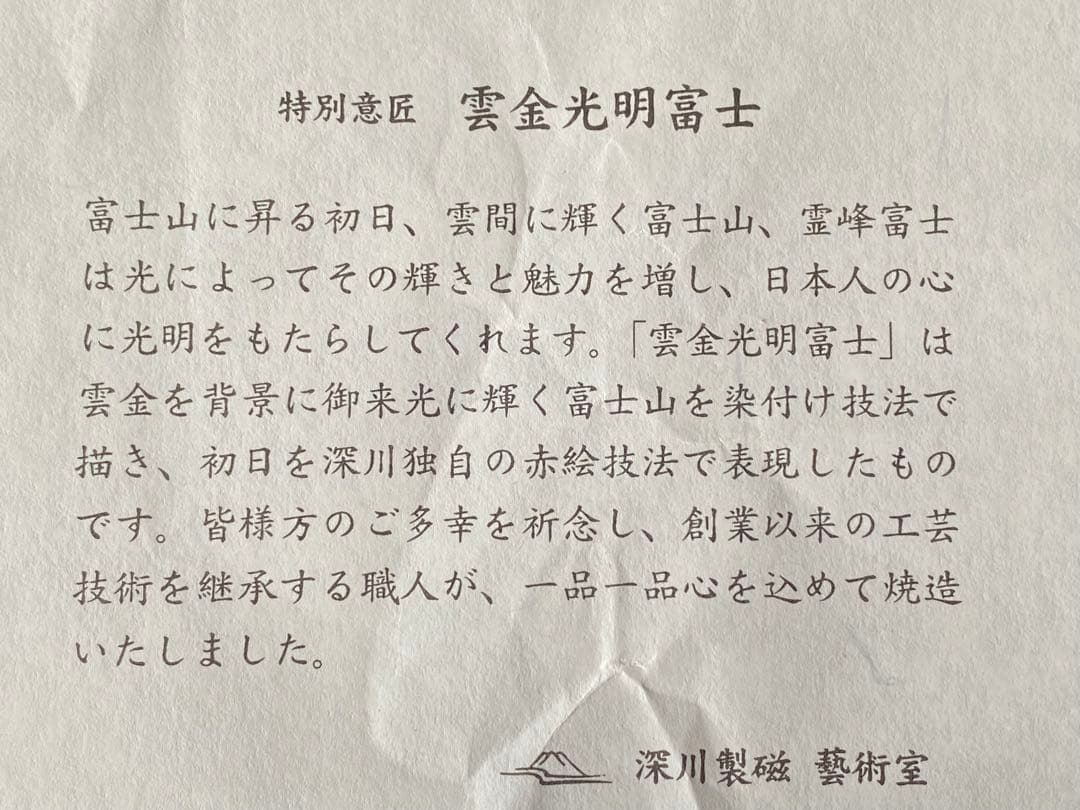 特別意匠 雲金光明富士
富士山に昇る初日、雲間に輝く富士山、霊峰富士
は光によってその輝きと魅力を増し、日本人の心
に光明をもたらしてくれます。「雲金光明富士」は
雲金を背景に御来光に輝く富士山を染付け技法で
描き、初日を深川独自の赤絵技法で表現したもの
です。皆様方のご多幸を祈念し、創業以来の工芸
技術を継承する職人が、一品一品心を込めて焼造
いたしました。
深川製磁 藝術室